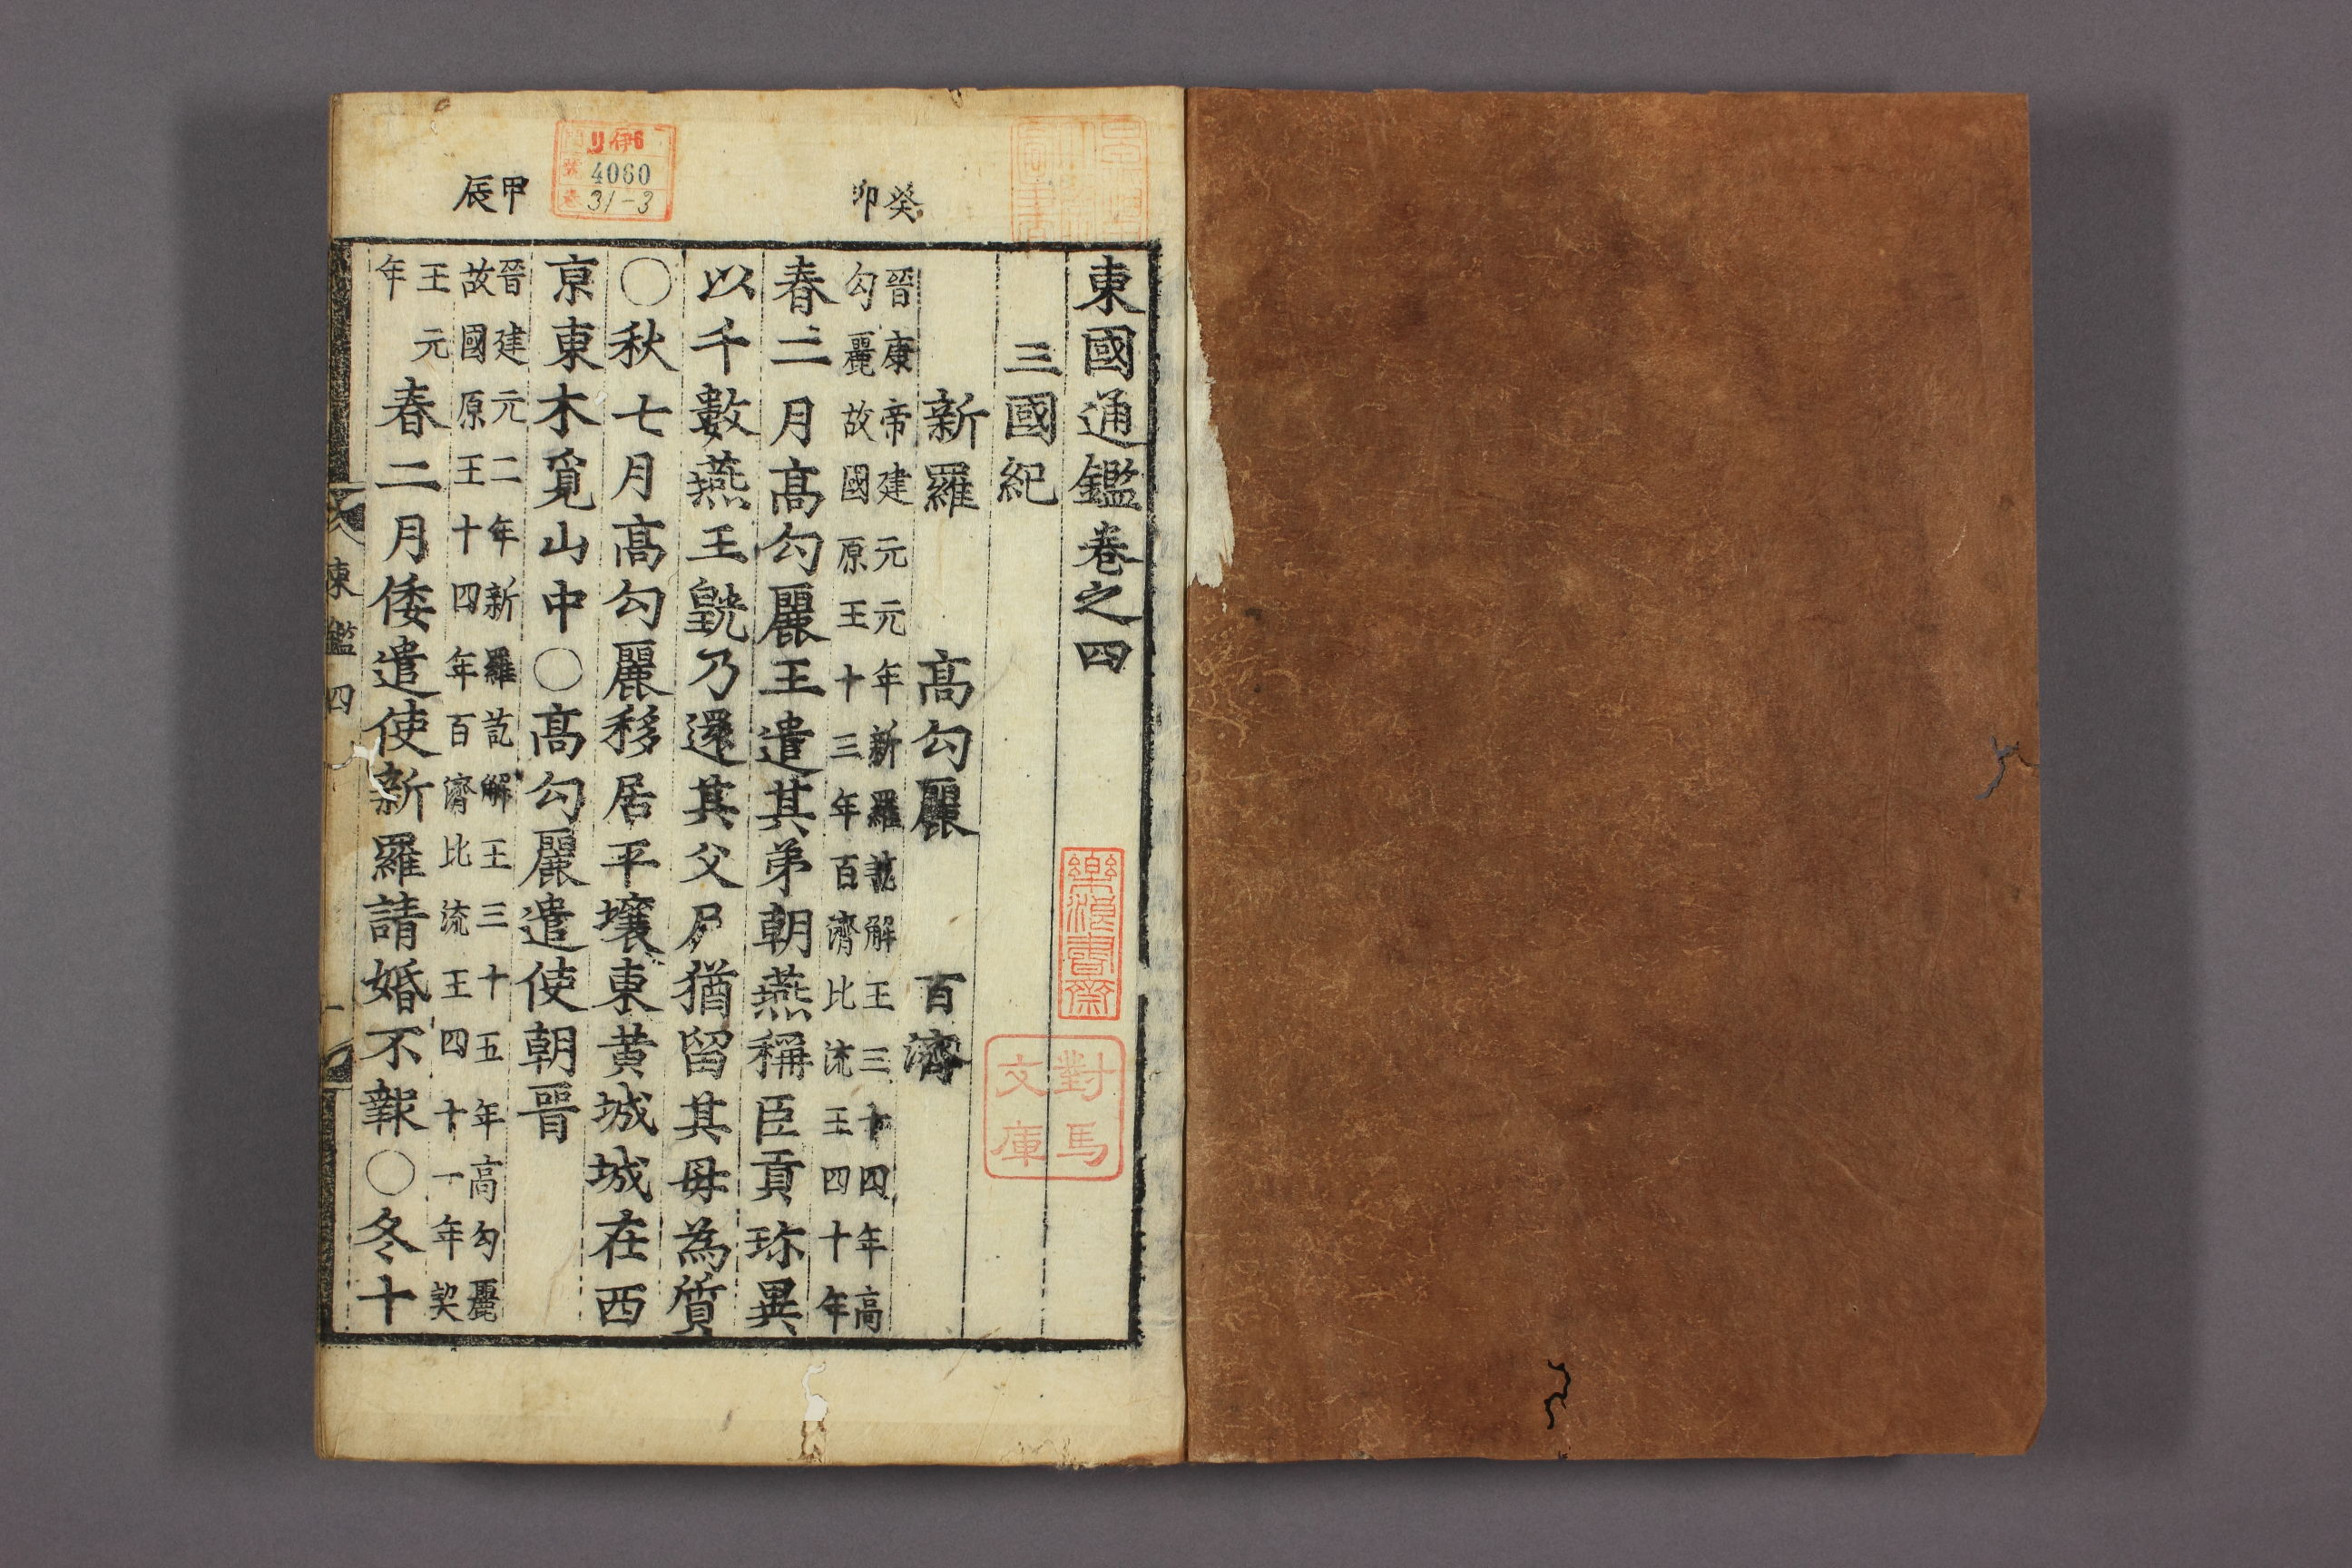 東國通鑑卷之四
三國紀
新羅 高勾麗 百濟
癸卯
晉康帝建元元年新羅訖解王三十四年高
勾麗故國原王十三年百濟比流王四十年
春二月高勾麗王遣其弟朝燕稱臣貢珎異
以千數燕王皝乃還其父尸猶留其母為質
〇秋七月高勾麗移居平壤東黃城城在西
京東木覓山中〇高勾麗遣使朝晉
甲辰
晉建元二年新羅訖解王三十五年高勾麗
故國原王十四年百濟比流王四十一年契
王元
年
春二月倭遣使新羅請婚不報〇冬十
東鑑四
一
リ伊6
4060
31-3
樂浪書齋
對馬
文庫